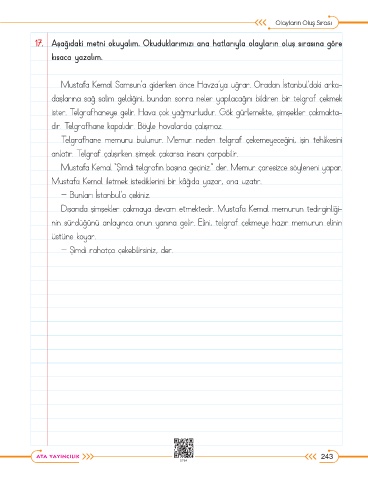 Olayların Oluş Sırası
17. Aşağıdaki metni okuyalım. Okuduklarımızı ana hatlarıyla olayların oluş sırasına göre
kısaca yazalım.
Mustafa Kemal Samsun'a giderken önce Havza'ya uğrar. Oradan İstanbul'daki arka-
daşlarına sağ salim geldiğini, bundan sonra neler yapılacağını bildiren bir telgraf çekmek
ister. Telgrafhaneye gelir. Hava çok yağmurludur. Gök gürlemekte, şimşekler çakmakta-
dır. Telgrafhane kapalıdır. Böyle havalarda çalışmaz.
Telgrafhane memuru bulunur. Memur neden telgraf çekemeyeceğini, işin tehlikesini
anlatır. Telgraf çalışırken şimşek çakarsa insanı çarpabilir.
Mustafa Kemal "Şimdi telgrafın başına geçiniz." der. Memur çaresizce söyleneni yapar.
Mustafa Kemal iletmek istediklerini bir kâğıda yazar, ona uzatır.
– Bunları İstanbul'a çekiniz.
Dışarıda şimşekler çakmaya devam etmektedir. Mustafa Kemal memurun tedirginliği-
nin sürdüğünü anlayınca onun yanına gelir. Elini, telgraf çekmeye hazır memurun elinin
üstüne koyar.
– Şimdi rahatça çekebilirsiniz, der.
ATA YAYINCILIK
243